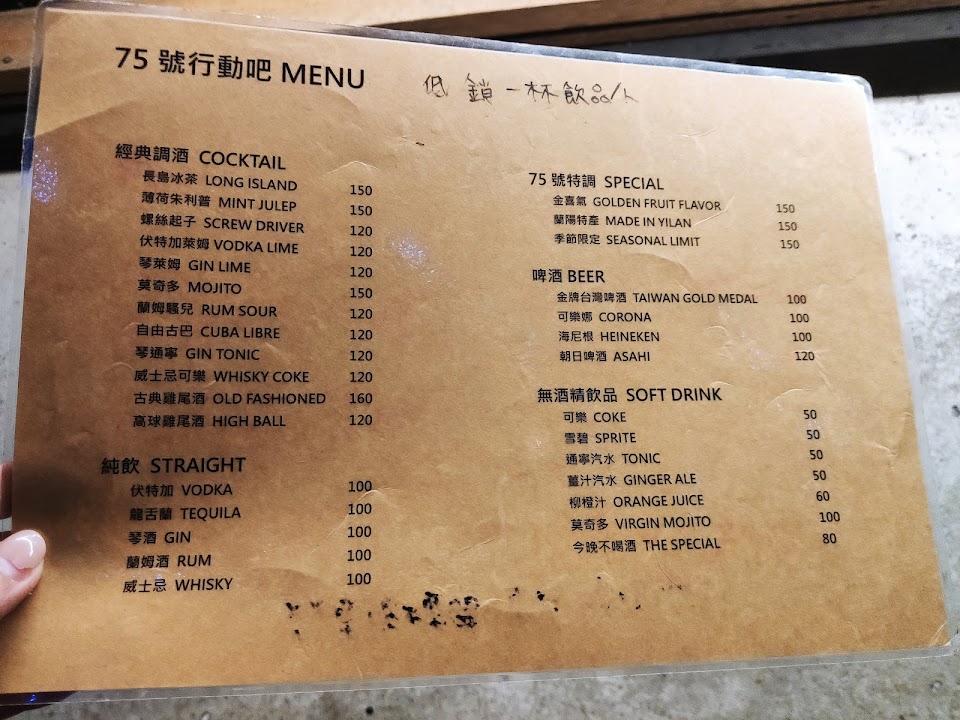 75 號行動吧 MENU
低鎖一杯飲品/人
經典調酒 COCKTAIL
長島冰茶 LONG ISLAND 150
薄荷朱利普 MINT JULEP 150
螺絲起子 SCREW DRIVER 120
伏特加萊姆 VODKA LIME 120
琴萊姆 GIN LIME 120
莫奇多 MOJITO 150
蘭姆騷兒 RUM SOUR 120
自由古巴 CUBA LIBRE 120
琴通寧 GIN TONIC 120
威士忌可樂 WHISKY COKE 120
古典雞尾酒 OLD FASHIONED 160
高球雞尾酒 HIGH BALL 120
純飲 STRAIGHT
伏特加 VODKA 100
龍舌蘭 TEQUILA 100
琴酒 GIN 100
蘭姆酒 RUM 100
威士忌 WHISKY 100
75 號特調 SPECIAL
金喜氣 GOLDEN FRUIT FLAVOR 150
蘭陽特產 MADE IN YILAN 150
季節限定 SEASONAL LIMIT 150
啤酒 BEER
金牌台灣啤酒 TAIWAN GOLD MEDAL 100
可樂娜 CORONA 100
海尼根 HEINEKEN 100
朝日啤酒 ASAHI 120
無酒精飲品 SOFT DRINK
可樂 COKE 50
雪碧 SPRITE 50
通寧汽水 TONIC 50
薑汁汽水 GINGER ALE 50
柳橙汁 ORANGE JUICE 60
莫奇多 VIRGIN MOJITO 100
今晚不喝酒 THE SPECIAL 80